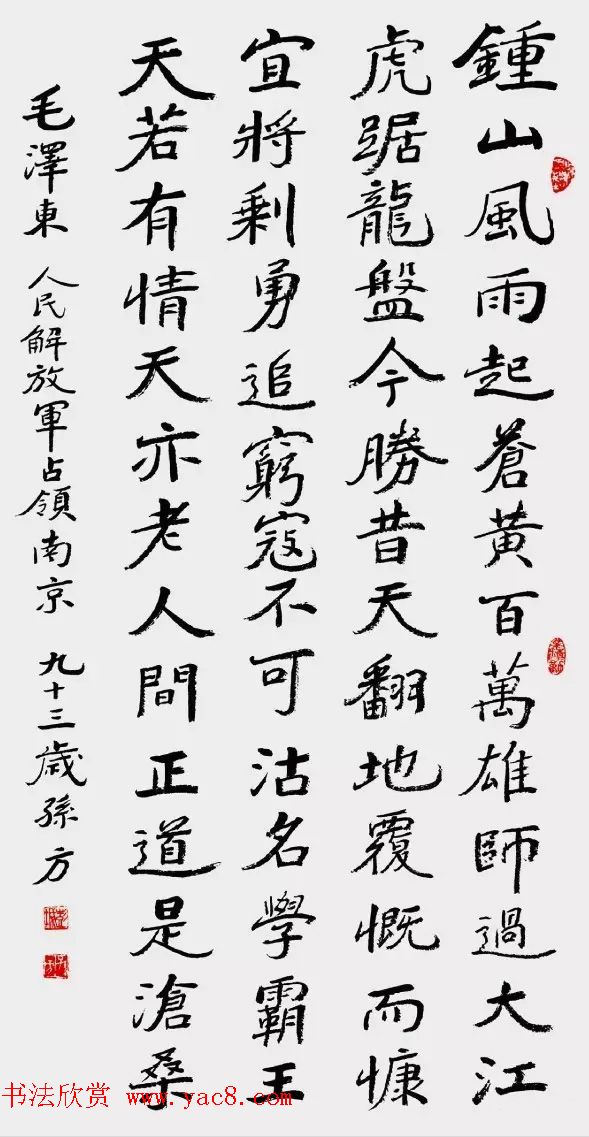 鍾山風雨起蒼黃百萬雄師過大江
虎踞龍盤今勝昔天翻地覆慨而慷
宜將剩勇追窮寇不可沽名學霸王
天若有情天亦老人間正道是滄桑
毛澤東 人民解放軍占領南京 九十三歲孫方
书法欣赏 www.yac8.com